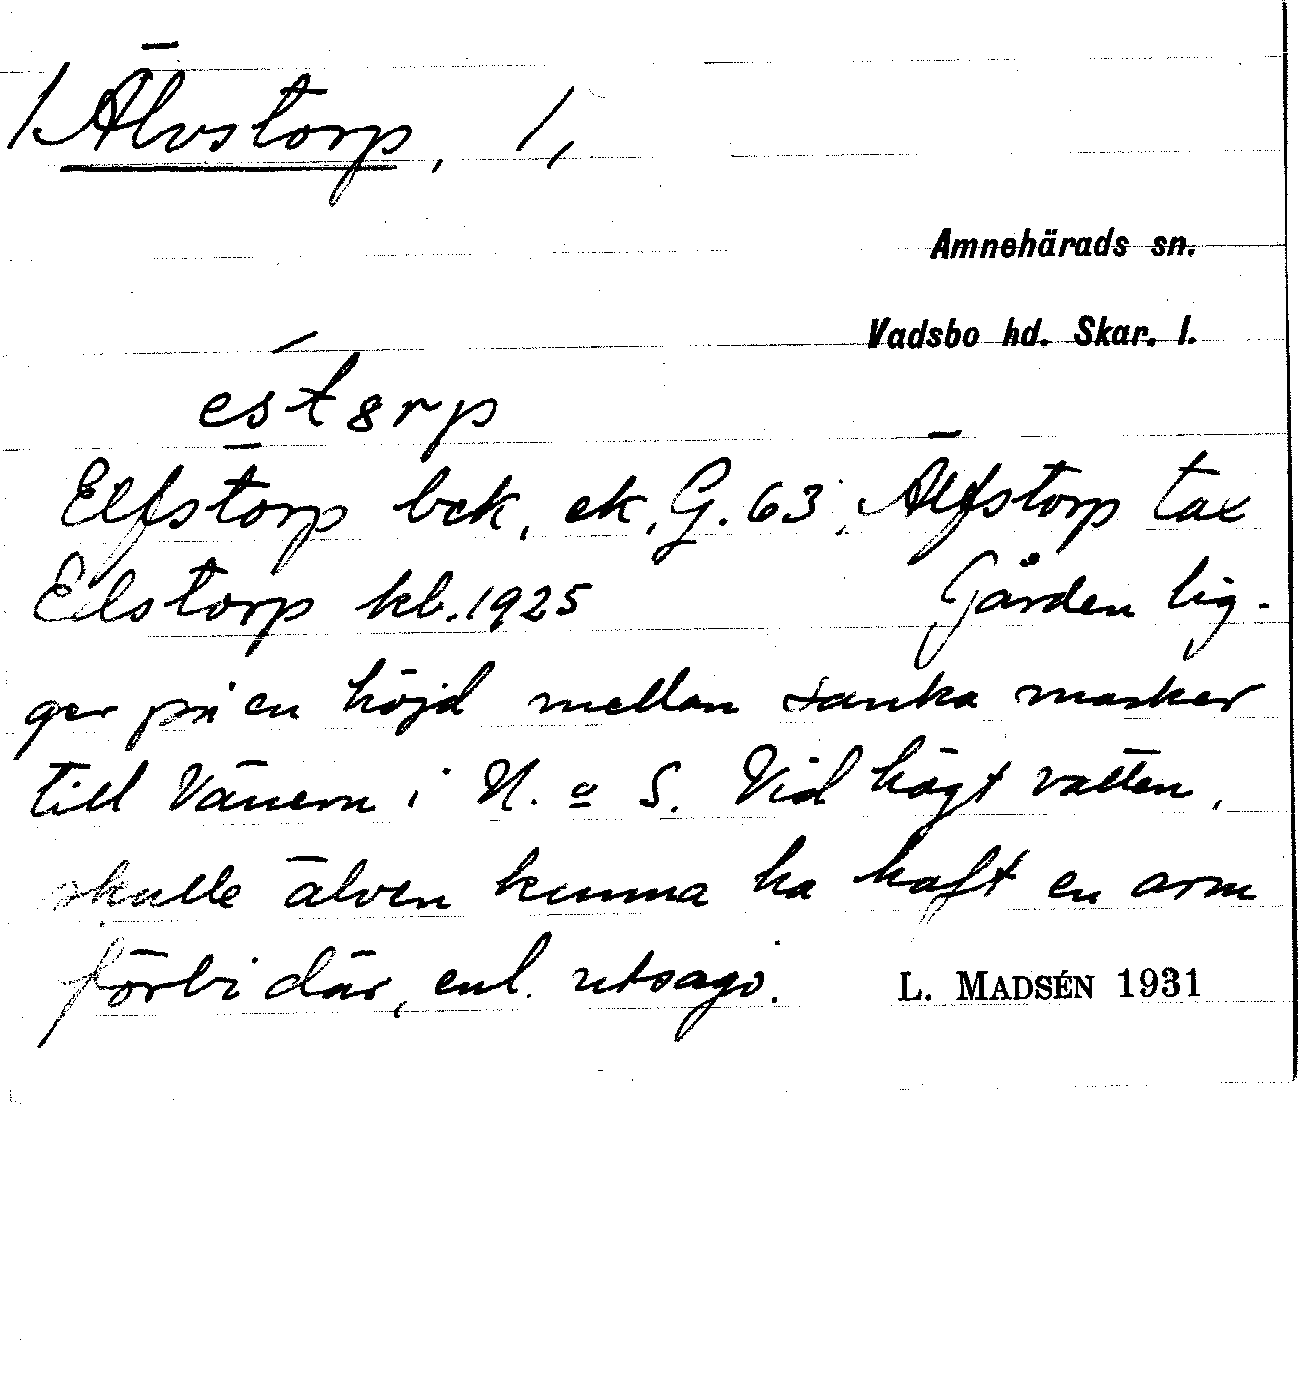 / Älvstorp, 1,
Amnehärads sn.
Vadsbo hd. Skar. l.
estørp
Elfstorp bek, ek, G. 63, Älfstorp tax
Elstorp kb. 1925 Gården lig-
ger på en höjd mellan sanka marker
till Vänern i N. o S. Vid högt vatten,
skulle älven kunna ha haft en arm
förbi där, enl. utsago.
L. MADSÉN 1931